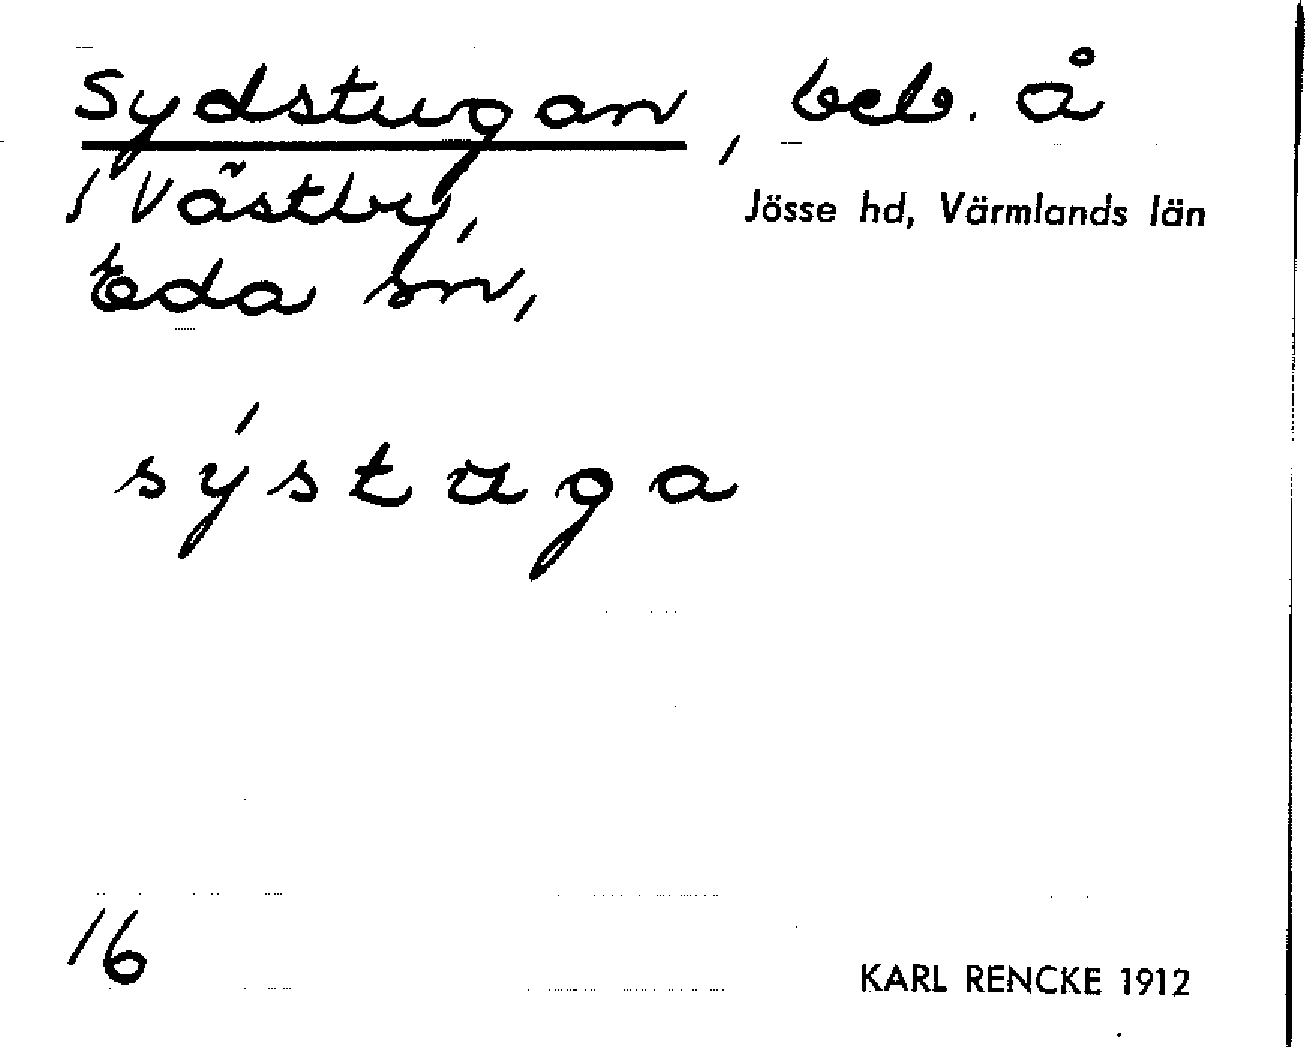 Sydstugan, beb. å
1 Västby,
Jösse hd, Värmlands län
Eda sn,
sýstuga
16
KARL RENCKE 1912